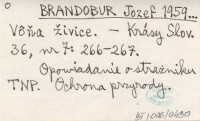 BRANDOBUR Jozef 1959...
Vôňa živice. – Krásy Slov.
36, nr 7: 266-267.
Opowiadanie o strażniku
TNP. Ochrona przyrody.